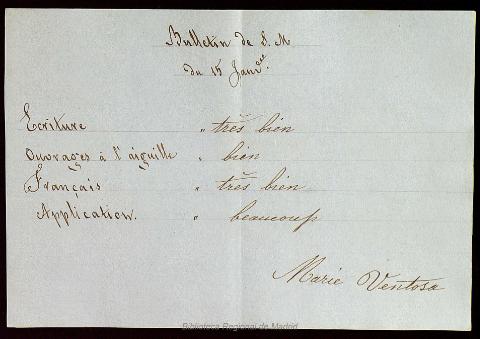 Bulletin de S. M
du 15 Janv.er
Ecriture " très bien
Ouvrages à l'aiguille " bien
Français " très bien
Application. " beaucoup
Marie Ventosa
Biblioteca Regional de Madrid